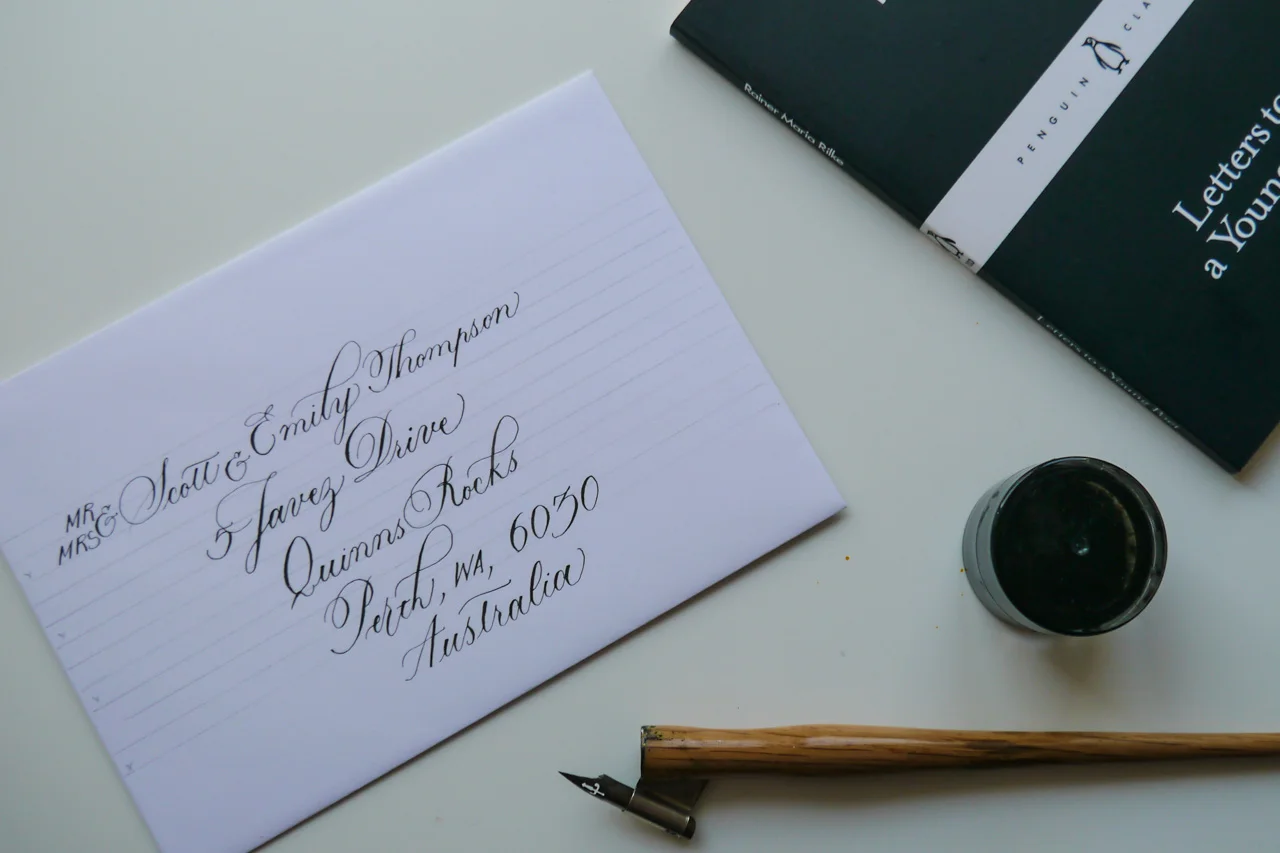 MR & MRS Scott & Emily Thompson
5 Javez Drive
Quinns Rocks
Perth, WA, 6030
Australia
Rainer Maria Rilke
PENGUIN CLA
Letters to
a Young
Letters to a Young Poet